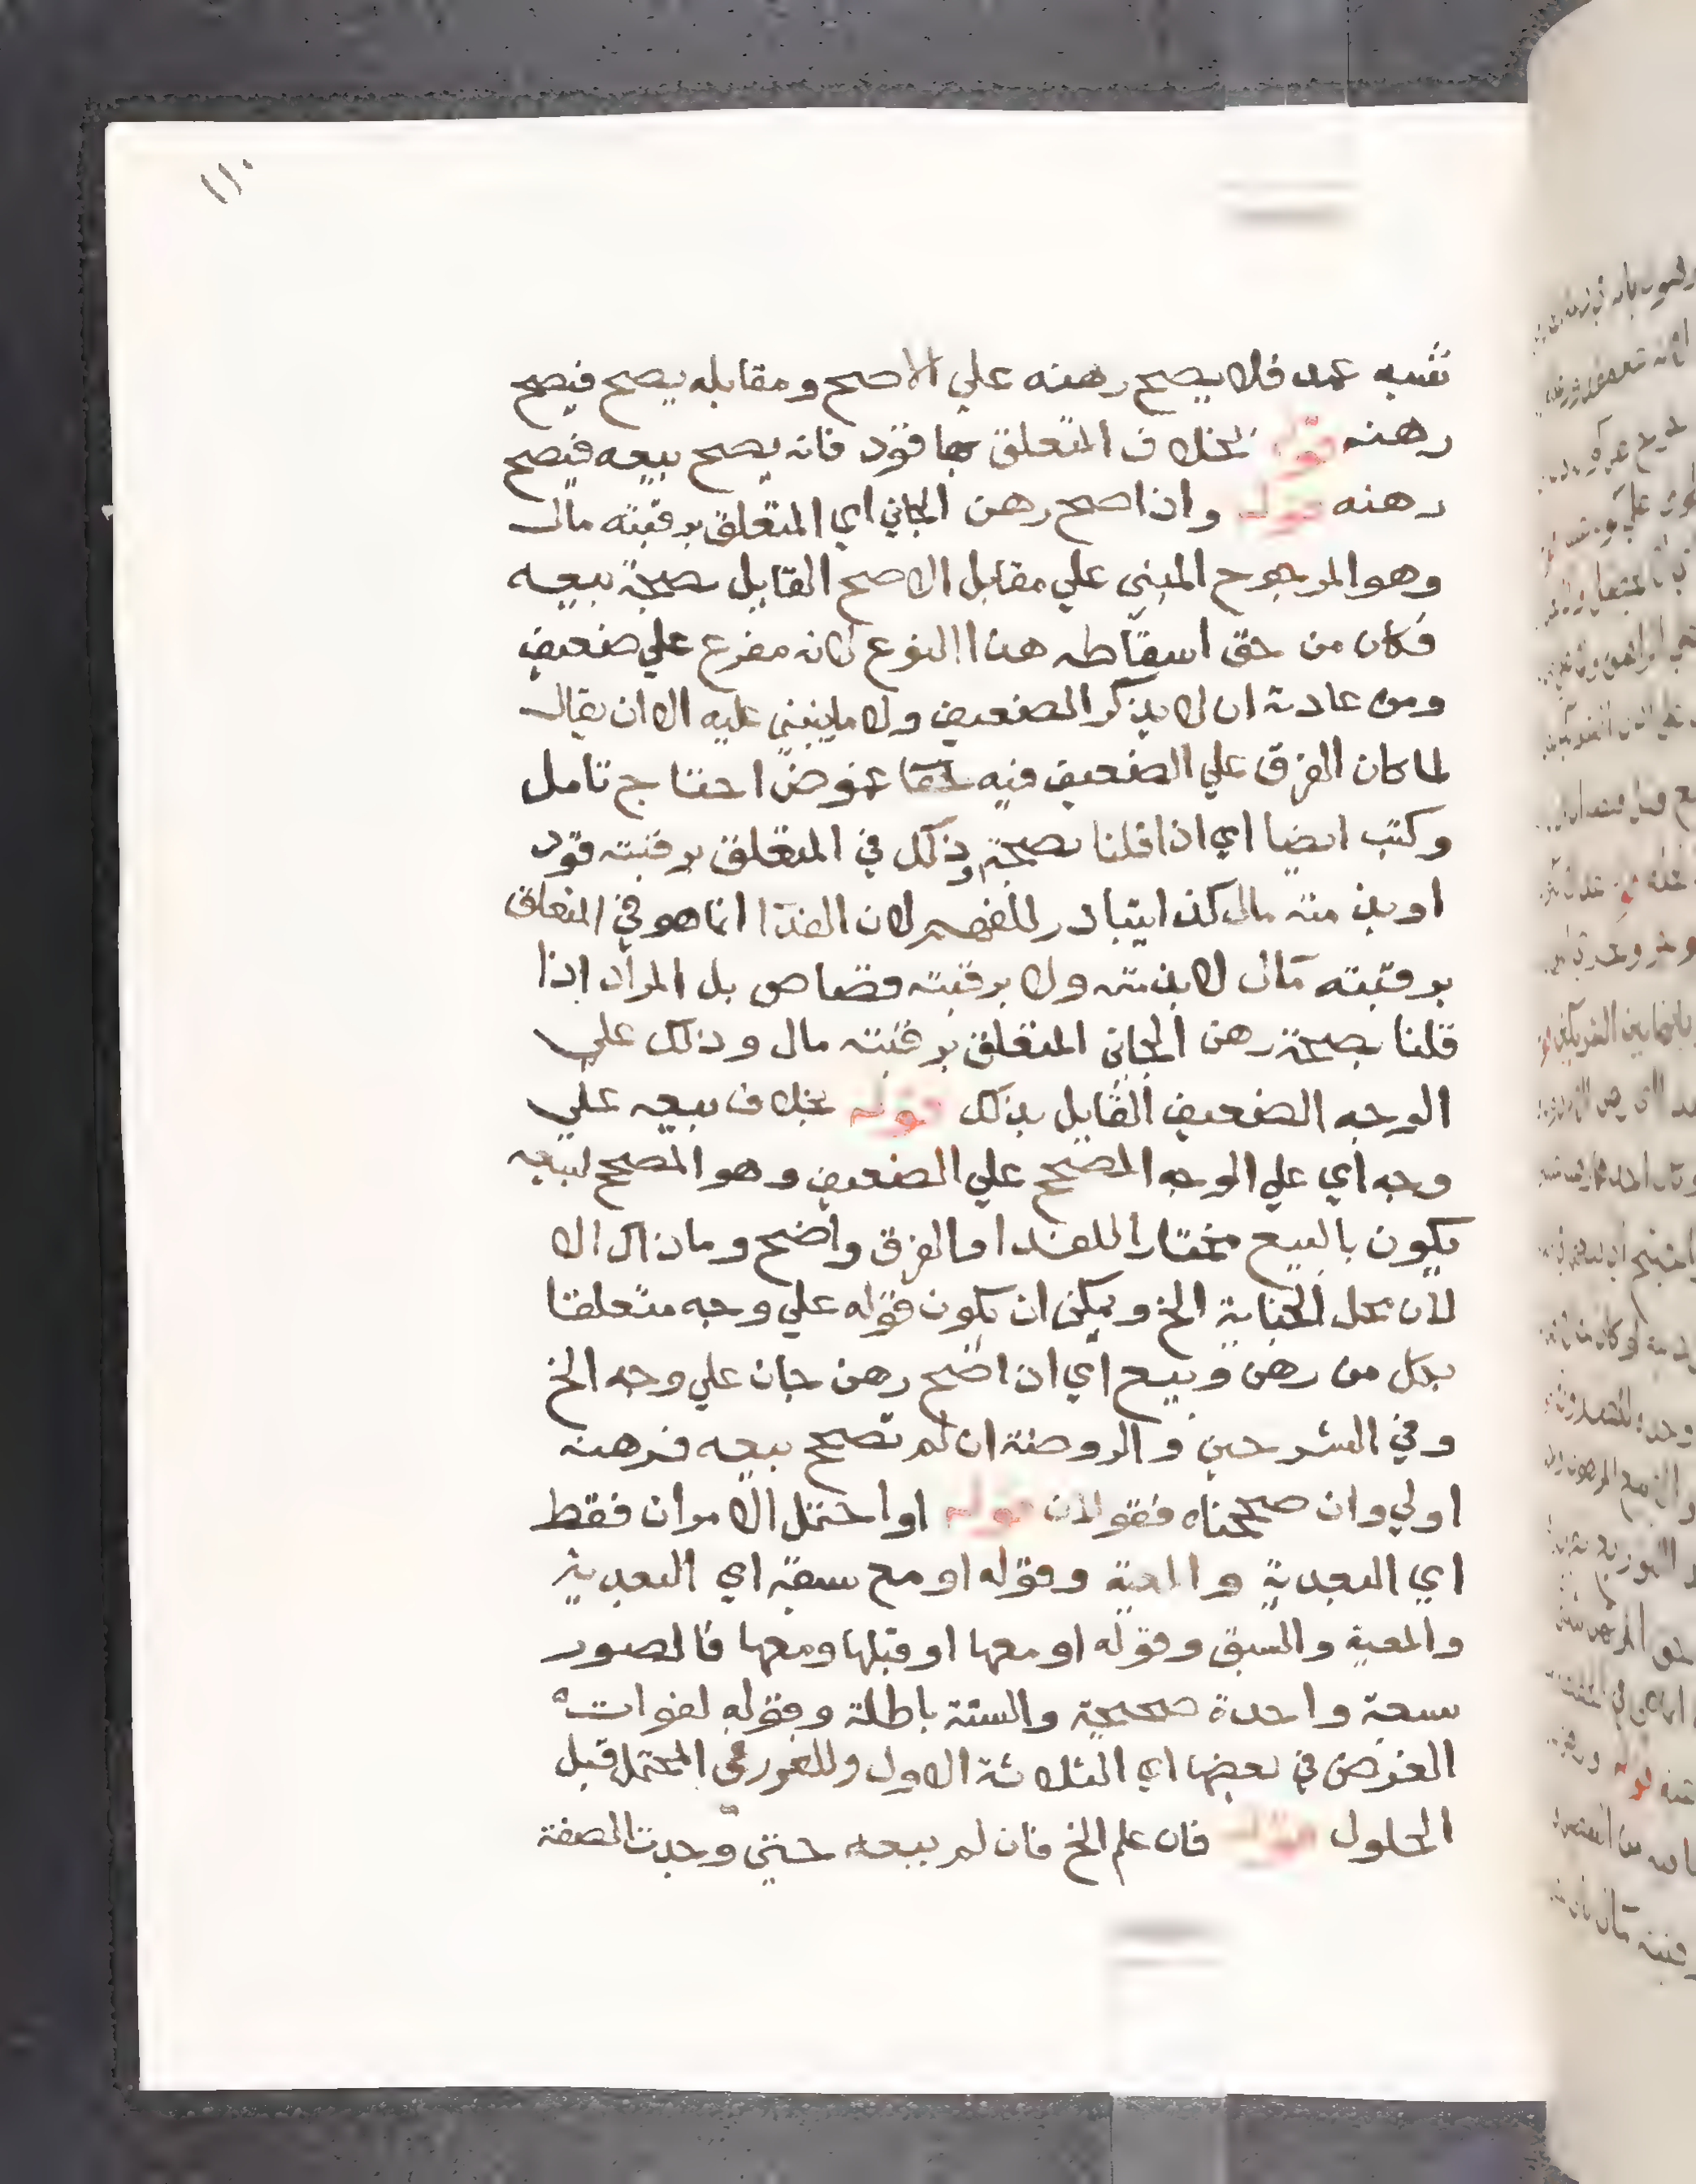 ١١٠
شبه عمد فلا يصح رهنه علي الاصح ومقابله يصح فيصح
رهنه قوله بخلاف المتعلق بها قود فانه يصح بيعه فيصح
رهنه قوله واذا صح رهن الجاني اي المتعلق برقبته مال
وهو المرجوح المبني علي مقابل الاصح القايل بصحة بيعه
فكان من حق اسقاطه هذا النوع لانه مفرع علي ضعيف
ومن عادته ان لا يذكر الضعيف ولا ما ينبني عليه الا ان يقال
لما كان الفرق علي الضعيف فيه غموض احتاج تامل
وكتب ايضا اي اذا قلنا بصحة وذلك في المتعلق برقبته قود
او بذمته مال كذا يتبادر للفهم لان الفدا انما هو في المتعلق
برقبته مال لا بذمته ولا برقبته قصاص بل المراد اذا
قلنا بصحة رهن الجاني المتعلق برقبته مال وذلك علي
الوجه الضعيف القايل بذلك قوله بخلاف بيعه علي
وجه اي علي الوجه المصحح علي الضعيف وهو المصحح لبيعه
يكون بالبيع مختارا للفدا فالفرق واضح وما ذاك الا
لان محل الجناية الخ ويمكن ان يكون قوله علي وجه متعلقا
بكل من رهن وبيع اي اذا صح رهن جان علي وجه الخ
وفي الشرحين والروضة ان لم نصحح بيعه فرهنه
اولي وان صححناه فقولان قوله او احتمل الامران فقط
اي البعدية والمعية وقوله او مع سبقه اي البعدية
والمعية والسبق وقوله او معها او قبلها ومعها فالصور
سبعة واحدة صحيحة والستة باطلة وقوله لفوات
الغرض في بعضها اي الثلاثة الاول وللغرر في المحتمل قبل
الحلول قوله فان علم الخ فان لم يبعه حتي وجدت الصفة